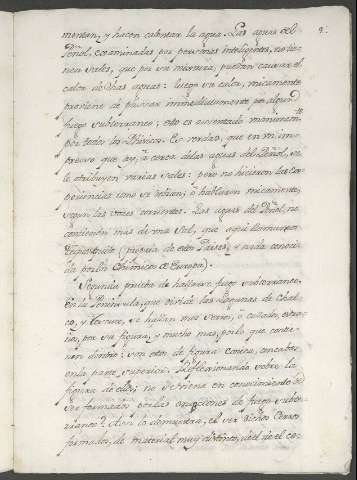 2.
mentan, y hacen calentar la agua. Las aguas del
Peñol, examinadas por personas inteligentes, no tie-
nen sales, que por su mixtura, puedan causar el
calor de dhas aguas: luego su calor, unicamente
proviene de passar immediatamente por algun
fuego subterraneo; esto es asentado
por todos los Phisicos. Es verdad, que en un im-
preso que ay, á cerca de las aguas del Peñol, se
le atribuyen varias sales: pero no hicieron las ex-
periencias como se debian; ó hablaron unicamente,
segun las voces corrientes. Las aguas del Peñol, no
contienen más de una Sal, que aquí llamamos
Tequesquite (propria de estos Paises, y nada conoci-
da por los Chimicos de Europa).
Segunda prueba de hallarse fuego subterraneo.
En la Peninsula, que divide las Lagunas de Chal-
co, y Tescuco, se hallan unos Cerros, ó collados, estra-
ños, por su figura, y mucho mas, por lo que contie-
nen dentro: son estos de figura conica, concabos
en la parte superior. Reflexionando sobre la
figura de ellos, no se viene en conocimiento de
ser formados por las erupciones de fuego subte-
rraneo? Aun lo demuestra, el ser dichos Cerros
formados, de material muy distinto, del de el co-